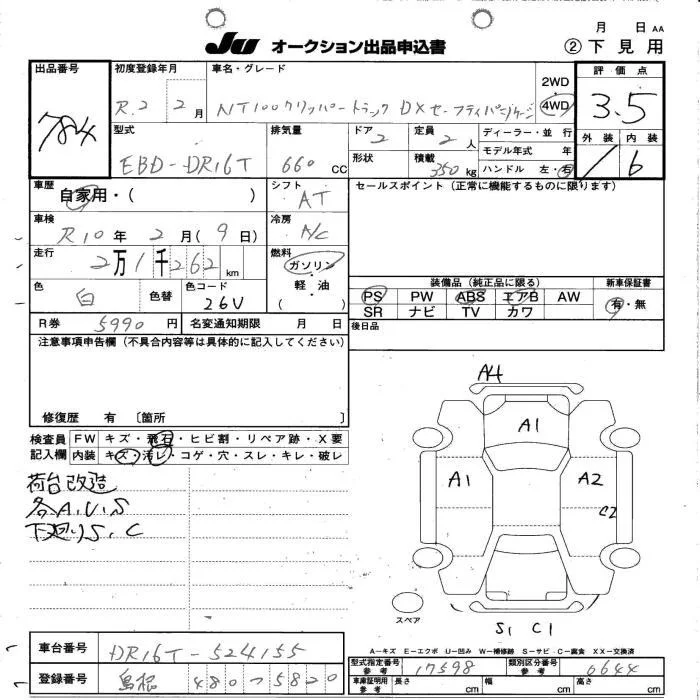 月 日 AA
JU オークション出品申込書 ② 下見用
出品番号
784
初度登録年月
R.2 2月
車名・グレード
NT100クリッパートラック DXセーフティパッケージ
2WD
4WD
評価点
3.5
型式
EBD-DR16T
排気量
660 CC
ドア
2
定員
2 人
ディーラー・並行
モデル年式 年
ハンドル 左・右
形状
積載
350 kg
外装 内装
/ 6
車歴
自家用・( )
シフト
AT
セールスポイント(正常に機能するものに限ります)
車検
R10年 2月( 9日)
冷房
A/C
走行
2万1千262 km
燃料
ガソリン
軽・油
( )
色
白
色替
色コード
26U
装備品(純正品に限る)
新車保証書
PS PW ABS エアB AW
SR ナビ TV カワ
有・無
R券 5990円
名変通知期限 月 日
後日品
注意事項申告欄(不具合内容等は具体的に記入してください)
修復歴 有 〔箇所 〕
検査員記入欄
FW キズ・飛石・ヒビ割・リペア跡・X要
内装 キズ・汚レ・コゲ・穴・スレ・キレ・破レ
荷台改造
各A.U.S
下廻りS.C
A4
A1
A1
A2
C2
スペア
S1 C1
A−キズ E−エクボ U−凹み W−補修跡 S−サビ C−腐食 XX−交換済
車台番号
DR16T-524155
型式指定番号
参考
17598
類別区分番号
参考
0644
登録番号
島根 480 う 5820
車庫証明用
参考
長さ cm
幅 cm
高さ cm